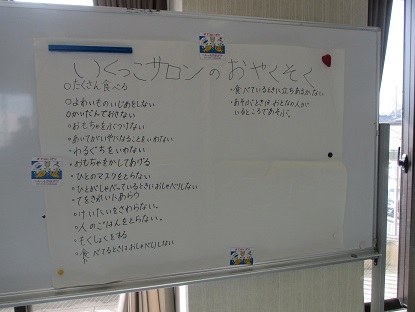 いくっこサロンのおやくそく
○たくさん食べる
○よわいものいじめをしない
○かいだんでおさない
・おもちゃをぶつけない
・あいてがいやがることをいわない
・わるぐちをいわない
・おもちゃをかしてあげる
・ひとのマスクをとらない
・ひとがしゃべっているときにおしゃべりしない
・てをきれいにあらう
・けいたいをさわらない。
・人のごはんをとらない。
・もくしょくをする
・食べてるときにおしゃべりしない
・食べているときに立ちあるかない
・あそぶときは、おとなの人が
いるところであそぶ。